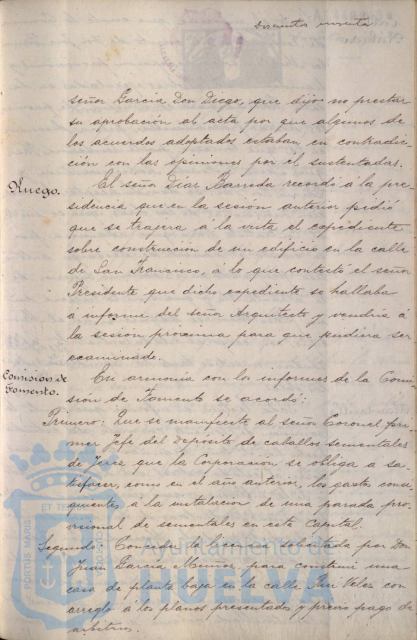 Doscientos noventa
señor Garcia Don Diego, que dijo: no prestar
su aprobación al acta por que algunos de
los acuerdos adoptados estaban en contradic-
ción con las opiniones por él sustentadas.
Ruego.
El señor Diaz Barreda recordó á la pre-
sidencia que en la sesión anterior pidió
que se trajera á la vista el expediente
sobre construcción de un edificio en la calle
de San Francisco, á lo que contestó el señor
Presidente que dicho expediente se hallaba
á informe del señor Arquitecto y vendría á
la sesión próxima para que pudiera ser
examinado.
Comision de
Fomento.
En armonía con los informes de la Comi-
sión de Fomento se acordó:
Primero: Que se manifieste al señor Coronel pri-
mer Jefe del depósito de caballos sementales
de Jerez que la Corporación se obliga a sa-
tisfacer, como en el año anterior, los gastos consi-
guientes á la instalación de una parada pro-
visional de sementales en esta Capital.
Segundo: Conceder la licencia solicitada por Don
Juan Garcia Muñoz para construir una
casa de planta baja en la calle Rui Velez con
arreglo á los planos presentados y previo pago de
arbitrios.
Ayuntamiento de
HUELVA
PORTUS MARIS
ET TERRÆ